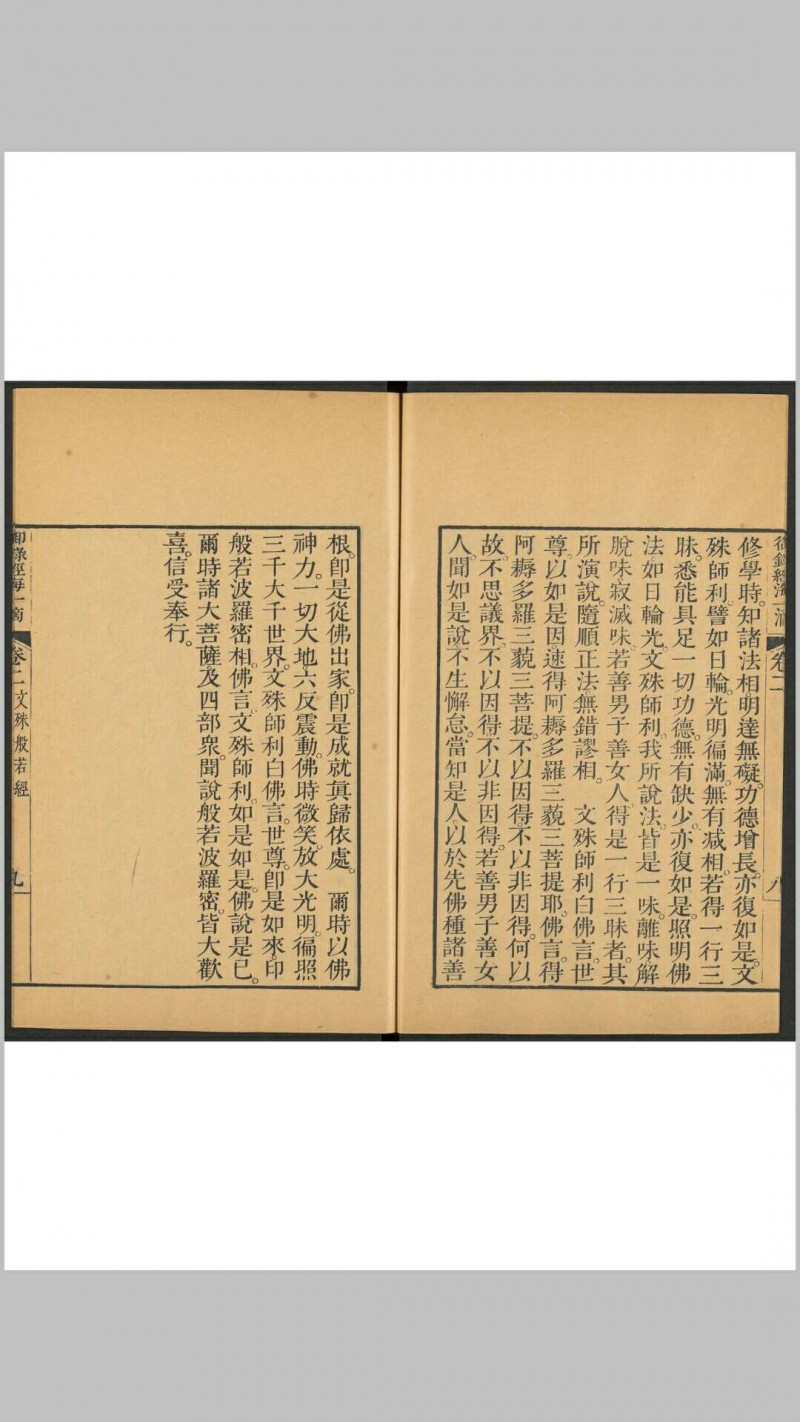 御錄經海一滴
卷二
八
修學時。知諸法相明達無礙。功德增長。亦復如是。文
殊師利。譬如日輪。光明徧滿。無有減相。若得一行三
昧。悉能具足一切功德。無有缺少。亦復如是。照明佛
法如日輪光。文殊師利。我所說法。皆是一味。離味解
脫味寂滅味。若善男子善女人得是一行三昧者。其
所演說。隨順正法無錯謬相。　文殊師利白佛言。世
尊。以如是因。速得阿耨多羅三藐三菩提耶。佛言。得
阿耨多羅三藐三菩提。不以因得。不以非因得。何以
故。不思議界。不以因得。不以非因得。若善男子善女
人。聞如是說。不生懈怠。當知是人。以於先佛種諸善
根。卽是從佛出家。卽是成就眞歸依處。　爾時以佛
神力。一切大地六反震動。佛時微笑。放大光明。徧照
三千大千世界。文殊師利白佛言。世尊。卽是如來印
般若波羅密相。佛言。文殊師利。如是如是。佛說是已。
爾時諸大菩薩及四部衆。聞說般若波羅密。皆大歡
喜。信受奉行。
御錄經海一滴
卷二文殊般若經
九